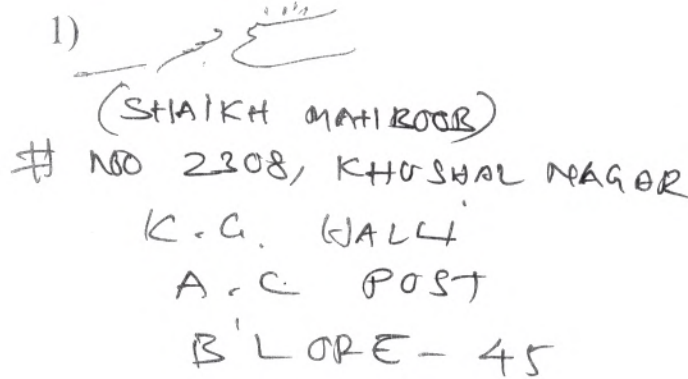 1)
(SHAIKH MAHBOOB)
# NO 2308, KHUSHAL NAGAR
K.G. HALLI
A.C POST
B'LORE - 45